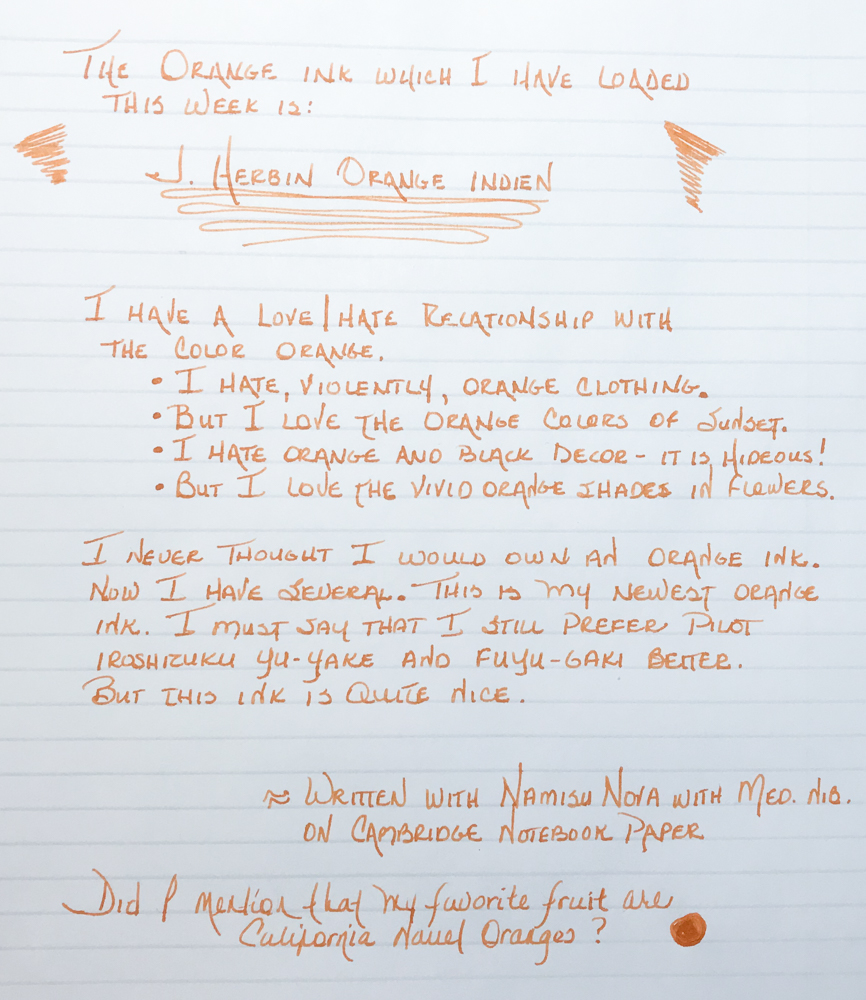 The Orange ink which I have loaded
this week is:
J. Herbin Orange Indien
I have a love/hate relationship with
the color orange.
• I hate, violently, orange clothing.
• But I love the orange colors of sunset.
• I hate orange and black decor - it is hideous!
• But I love the vivid orange shades in flowers.
I never thought I would own an orange ink.
Now I have several. This is my newest orange
ink. I must say that I still prefer Pilot
Iroshizuku Yu-Yake and Fuyu-Gaki better.
But this ink is quite nice.
≈ Written with Namisu Nova with Med. nib.
on Cambridge Notebook Paper
Did I mention that my favorite fruit are
California Navel Oranges?